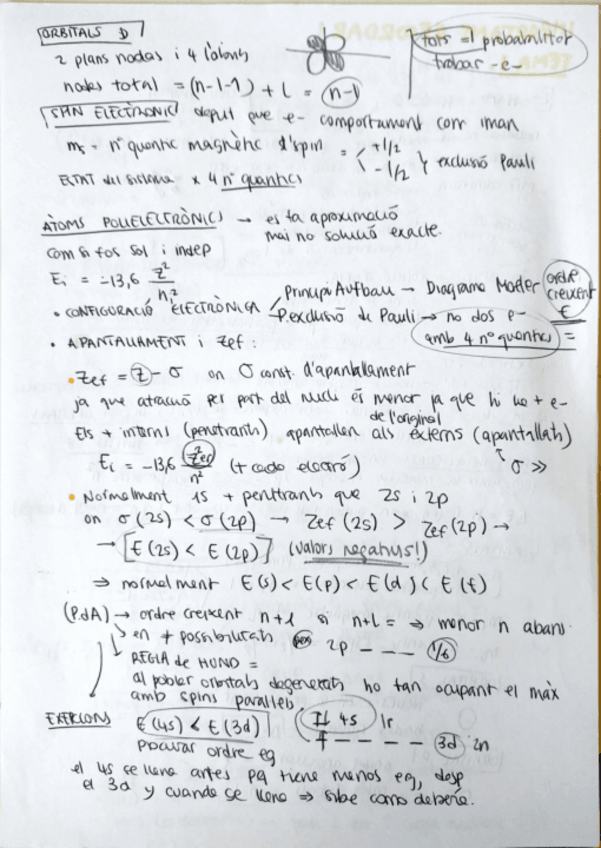 ORBITALS D
2 plans nodals i 4 lòbuls
nodes total = (n-l-1) + l = n-1
tots = probabilitat
trobar e-
SPIN ELECTRÒNIC degut que e- comportament com iman
ms = nº quàntic magnètic d'spin = +1/2 -1/2 } exclusió Pauli
ESTAT del sistema x 4 nº quàntics
ÀTOMS POLIELECTRÒNICS → es fa aproximació
mai no solució exacte.
Com si fos sol i indep
Ei = -13,6 Z²/n²
• CONFIGURACIÓ ELECTRÒNICA
Principi Aufbau → Diagrama Moeller
ordre creixent E
P.exclusió de Pauli → no dos e-
amb 4 nº quàntics =
• APANTALLAMENT i Zef:
• Zef = Z - σ on σ const. d'apantallament
ja que atracció per part del nucli és menor ja que hi ha + e-
de l'original
Els + interns (penetrants) apantallen als externs (apantallats)
↑ σ >>
Ei = -13,6 Zef²/n² (+ cada electró)
• Normalment 1s + penetrants que 2s i 2p
on σ(2s) < σ(2p) → Zef(2s) > Zef(2p) →
→ [E(2s) < E(2p)] (valors negatius!)
⇒ normalment E(s) < E(p) < E(d) < E(f)
(P.dA) → ordre creixent n+l si n+l = ⇒ menor n abans
en + possibilitats 2p _ _ _ 1/6
REGLA de HUND =
al poblar orbitals degenerats ho fan ocupant el màx
amb spins paral·lels
EXEPCIONS E(4s) < E(3d) 4s 1r
3d 2n
provocar ordre eg
el 4s se llena antes pq tiene menos eg, desp
el 3d y cuando se llena ⇒ sube como debería.